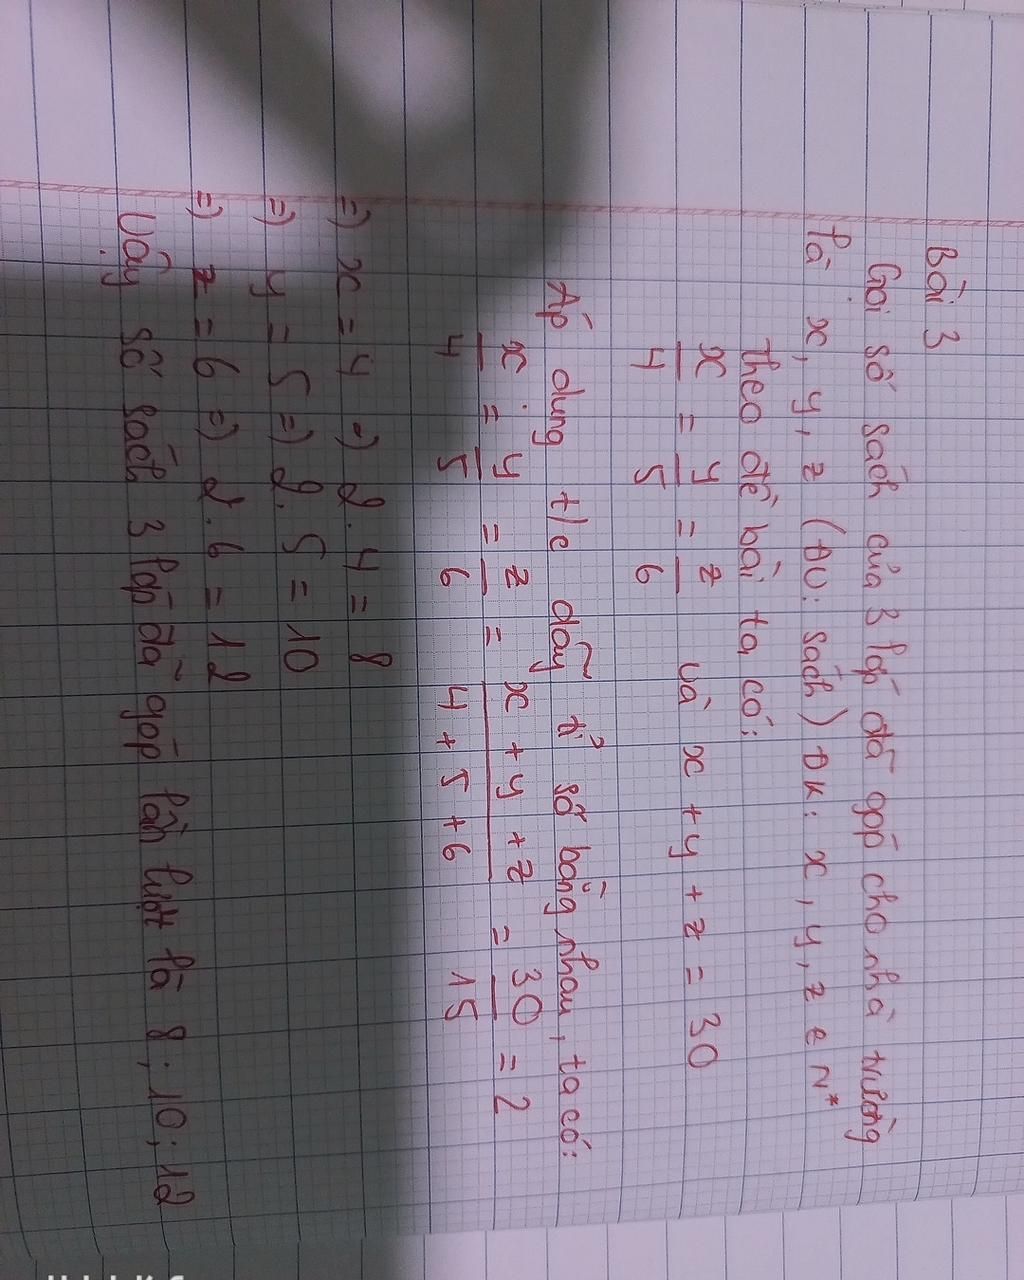 Bài 3
Gọi số sách của 3 lớp đã góp cho nhà trường
là x, y, z (ĐV: sách) ĐK: x, y, z e N*
theo đề bài ta có:
x/4 = y/5 = z/6 và x + y + z = 30
Áp dụng t/c dãy tỉ số bằng nhau, ta có:
x/4 = y/5 = z/6 = x + y + z/4 + 5 + 6 = 30/15 = 2
=) x = 4 =) 2.4 = 8
=) y = 5 =) 2.5 = 10
=) z = 6 =) 2.6 = 12
Vậy số sách 3 lớp đã góp lần lượt là 8; 10; 12